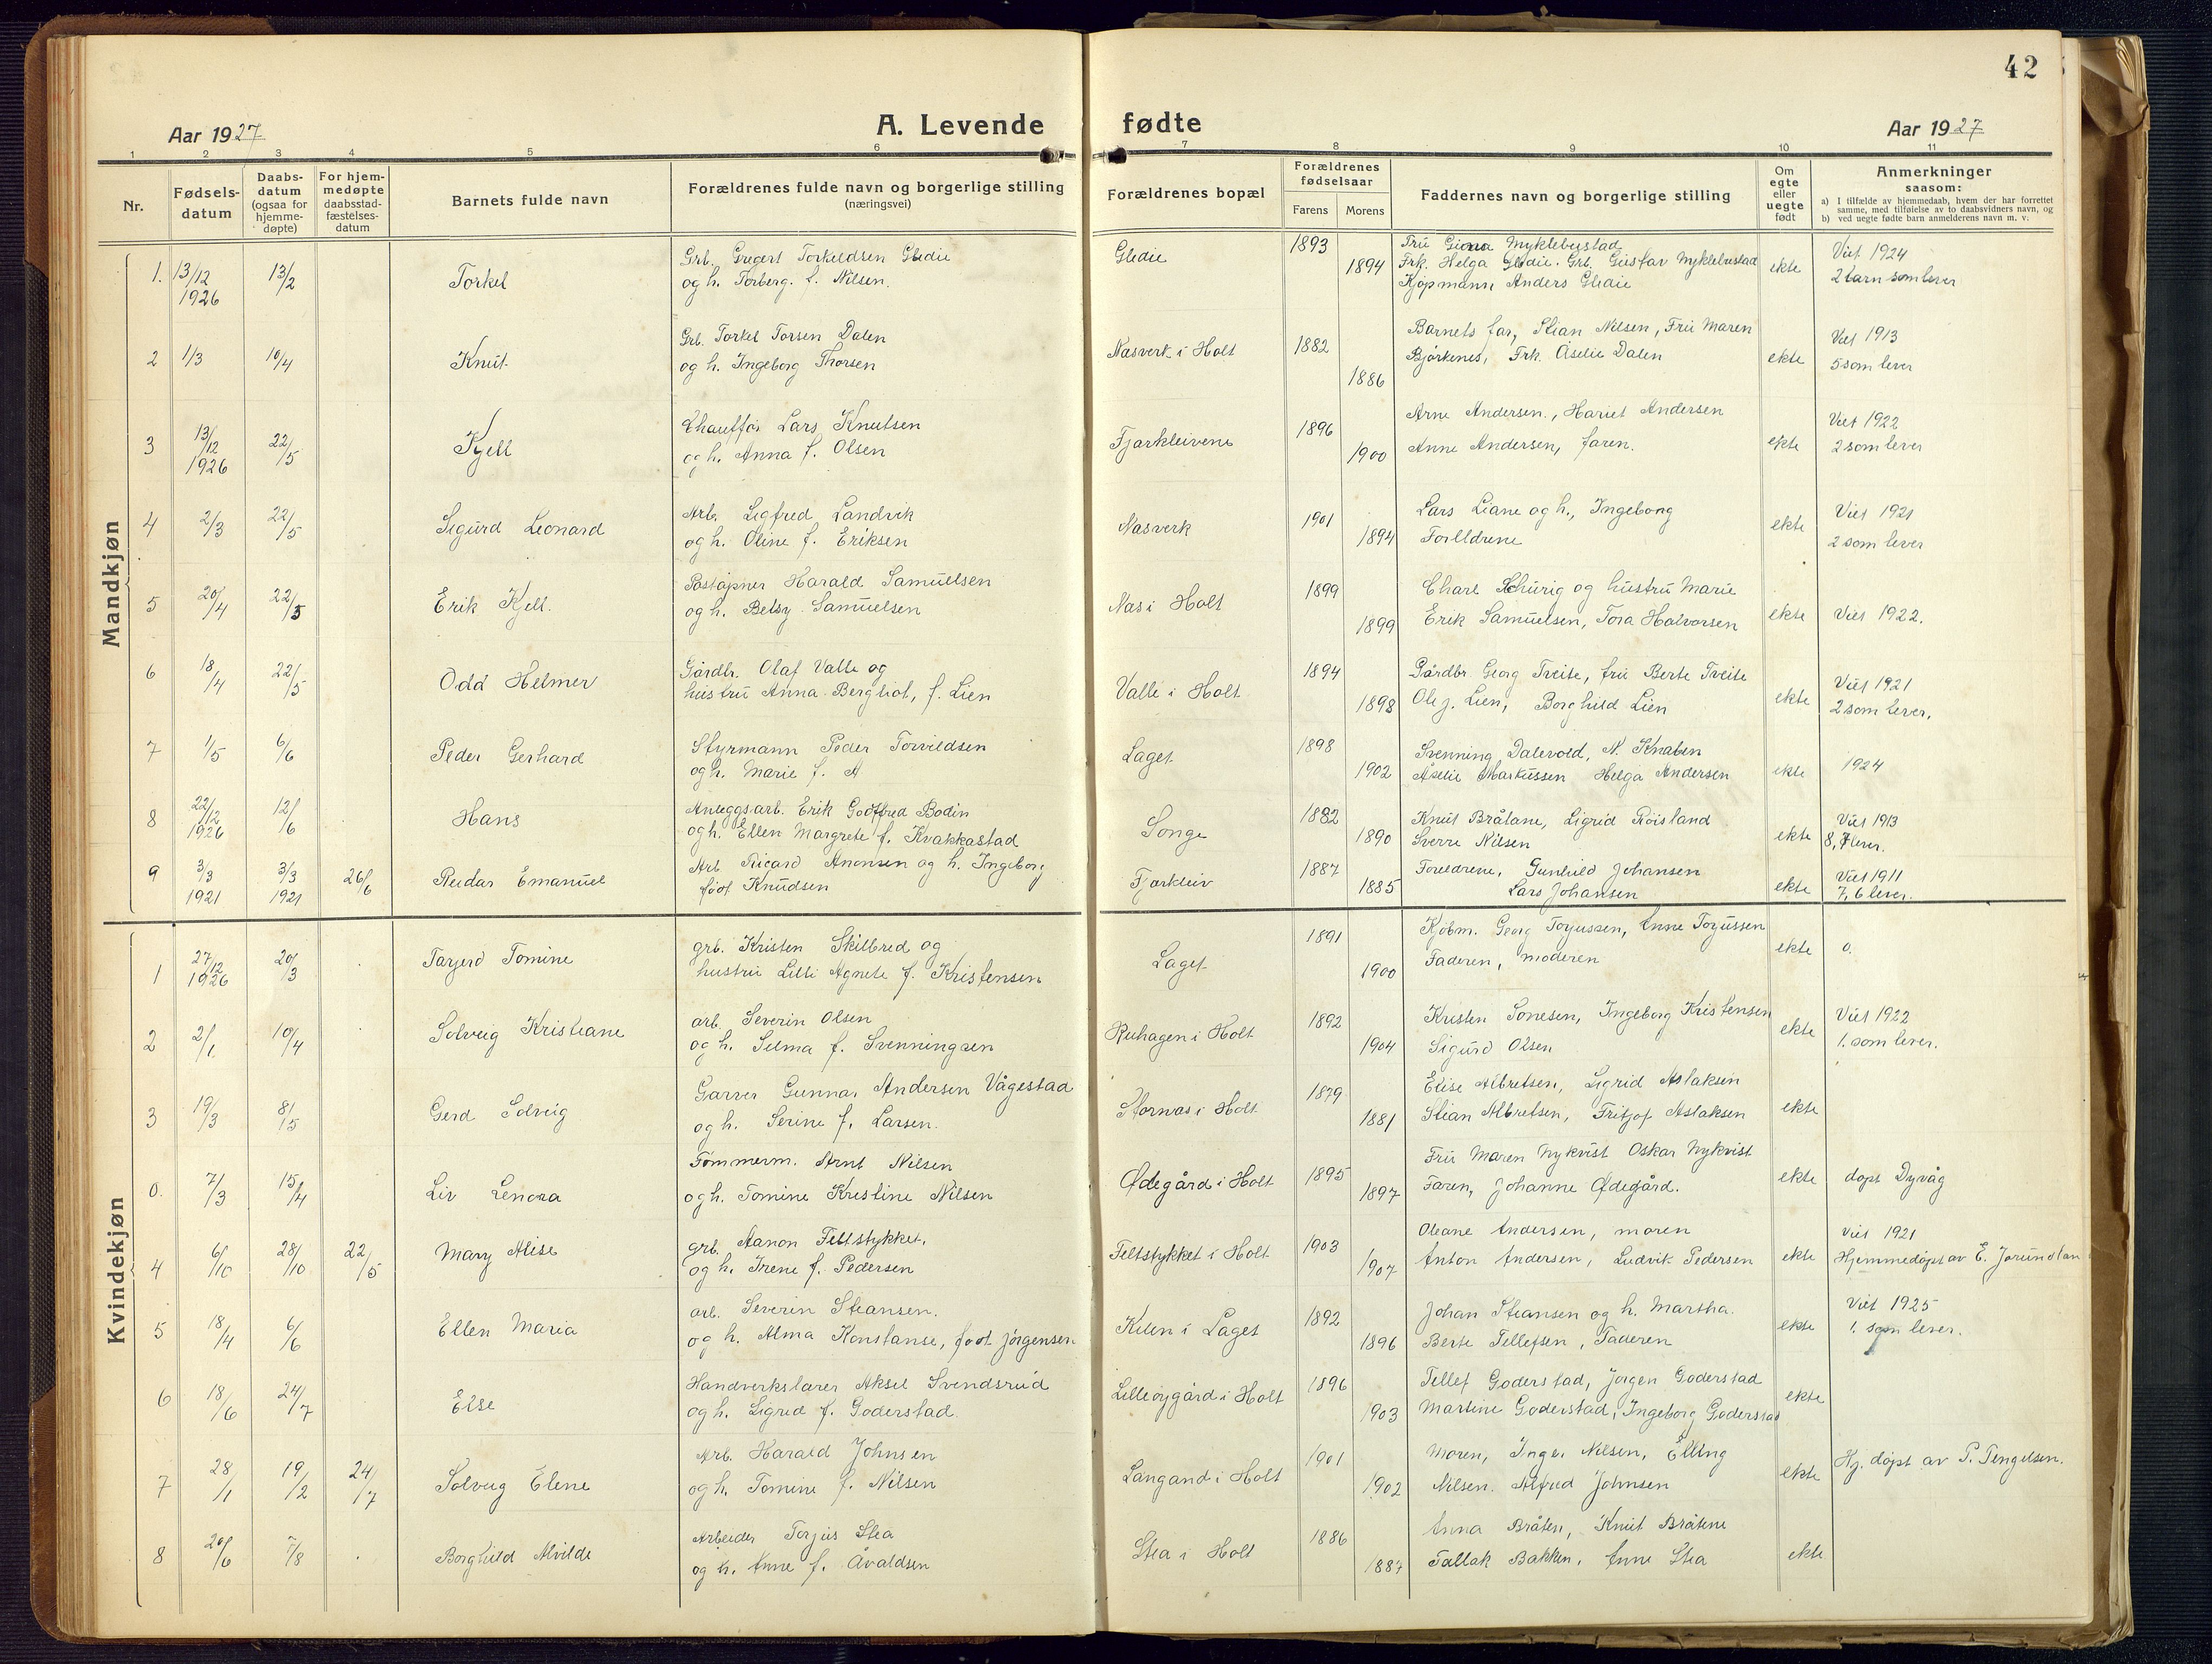 42
Aar 1927
A. Levende fødte
Aar 1927
1 2 3 4 5 6 7 8 9 10 11
Nr.
Fødsels-
datum
Daabs-
datum
(ogsaa for
hjemme-
døpte)
For hjem-
medøpte
daabsstad-
fæstelses-
datum
Barnets fulde navn
Forældrenes fulde navn og borgerlige stilling
(næringsvei)
Forældrenes bopæl
Forældrenes
fødselsaar
Farens Morens
Faddernes navn og borgerlige stilling
Om
egte
eller
uegte
født
Anmerkninger
saasom:
a) I tilfælde av hjemmedaab, hvem der har forrettet
samme, med tilføielse av to daabsvidners navn, og
b) ved uegte fødte barn anmelderens navn m. v.
Mandkjøn
1. 13/12 1926 13/2 Torkel
Grb. Gregert Torkeldsen Gledie
og h. Torberg. f. Nilsen.
Gledie 1893 1894
Fru Giena Myklebustad
Frk. Helga Gledie. Grb. Gustav Myklebustad
Kjøpmann Anders Gledie
ekte
Viet 1924
2 barn som lever
2 1/3 10/4 Knut.
Grb. Torkel Torsen Dalen
og h. Ingeborg Thorsen
Næsverk i Holt 1882 1886
Barnets far, Stian Nilsen, Fru Maren
Bjørkenes, Frk. Åselie Dalen
ekte
Viet 1913
5 som lever
3 13/12 1926 22/5 Kjell
Chauffør Lars Knutsen
og h. Anna f. Olsen
Fjærkleivene 1896 1900
Arne Andersen., Hariet Andersen
Anne Andersen, faren.
ekte
Viet 1922
2 som lever
4 2/3 22/5 Sigurd Leonard
Arb. Sigfred Landvik
og h. Oline f. Eriksen
Næsverk 1901 1894
Lars Liane og h., Ingeborg
Forlldrene
ekte
Viet 1921
2 som lever
5 20/4 22/5 Erik Kjell.
Poståpner Harald Samuelsen
og h. Betsy Samuelsen
Næs i Holt 1899 1899
Charl Schurig og hustru Marie
Erik Samuelsen, Tora Halvorsen
ekte
Viet 1922.
6 18/4 22/5 Odd Helmer
Gårdbr. Olaf Valle og
hustru Anna Bergliot, f. Lien
Valle i Holt 1894 1898
Gårdbr. Georg Tveite, fru Berte Tveite
Ole J. Lien, Borghild Lien
ekte
Viet 1921
2 som lever.
7 1/5 6/6 Peder Gerhard
Styrmann Peder Torvildsen
og h. Marie f. A
Laget 1898 1902
Svenning Dalevold, N. Knaben
Åselie Markussen Helga Andersen
ekte
1924
8 22/12 1926 12/6 Hans
Anleggsarb. Erik Godtfred Bodin
og h. Ellen Margrete f. Kvakkastad
Songe 1882 1890
Knut Bråtane, Sigrid Røisland
Sverre Nilsen
ekte
Viet 1913
8, 7 lever.
9 3/3 1921 3/3 1921 26/6 Reidar Emanuel
Arb Ricard Anonsen og h. Ingeborg
født Knudsen
Fjærkleiv 1887 1885
Foreldrene, Gunhild Johansen
Lars Johansen
ekte
Viet 1911
7, 6 lever.
Kvindekjøn
1 27/12 1926 20/3 Tarjerd Tomine
grb. Kristen Skilbred og
hustru Lilli Agnete f. Kristensen
Laget 1891 1900
Kjøbm. Georg Torjussen, Anne Torjussen
Faderen, moderen
ekte
0.
2 2/1 10/4 Solveig Kristiane
arb. Severin Olsen
og h. Selma f. Svenningsen
Ruhagen i Holt 1892 1904
Kristen Sonesen, Ingeborg Kristensen
Sigurd Olsen
ekte
Viet 1922
1. som lever.
3 19/3 8/5 Gerd Solveig
Garver Gunnar Andersen Vågestad
og h. Serine f. Larsen.
Stornæs i Holt 1879 1881
Elise Albretsen, Sigrid Aslaksen
Stian Albretsen, Fritjof Aslaksen
ekte
0. 7/3 15/4 Liv Lenora
Tømmerm. Arnt Nilsen
og h. Tomine Kristine Nilsen
Ødegård i Holt 1895 1897
Fru Maren Nykvist Oskar Nykvist
Faren, Johanne Ødegård.
ekte
døpt Dyvåg
4 6/10 28/10 22/5 Mary Alise
grb. Aanon Feltstykket,
og h. Irene f. Pedersen
Feltstykket i Holt 1903 1907
Oleane Andersen, moren
Anton Andersen, Ludvik Pedersen
ekte
Viet 1921
Hjemmedøpt av E. Jorundlan
5 18/4 6/6 Ellen Maria
arb. Severin Steansen.
og h. Alma Konstanse, født Jørgensen
Kilen i Laget 1892 1896
Johan Steansen og h. Martha.
Berte Tellefsen, Faderen
ekte
Viet 1925
1. som lever.
6 18/6 24/7 Else
Handverkslærer Aksel Svendsrud
og h. Sigred f. Goderstad.
Lilleøygård i Holt 1896 1903
Tellef Goderstad, Jørgen Goderstad
Martine Goderstad, Ingeborg Goderstad
ekte
7 28/1 19/2 24/7 Solveig Elene
Arb. Harald Johnsen
og h. Tomine f. Nilsen
Langand i Holt 1901 1902
Moren, Inger Nilsen, Elling
Nilsen. Alfred Johnsen
ekte
Hj. døpt av P. Tengelsen.
8 20/6 7/8 Borghild Alvilde
Arbeider Torjus Stea
og h. Anne f. Åvaldsen
Stea i Holt 1886 1887
Anna Bråten, Knut Bråtene
Tallak Bakken, Anne Stea
ekte